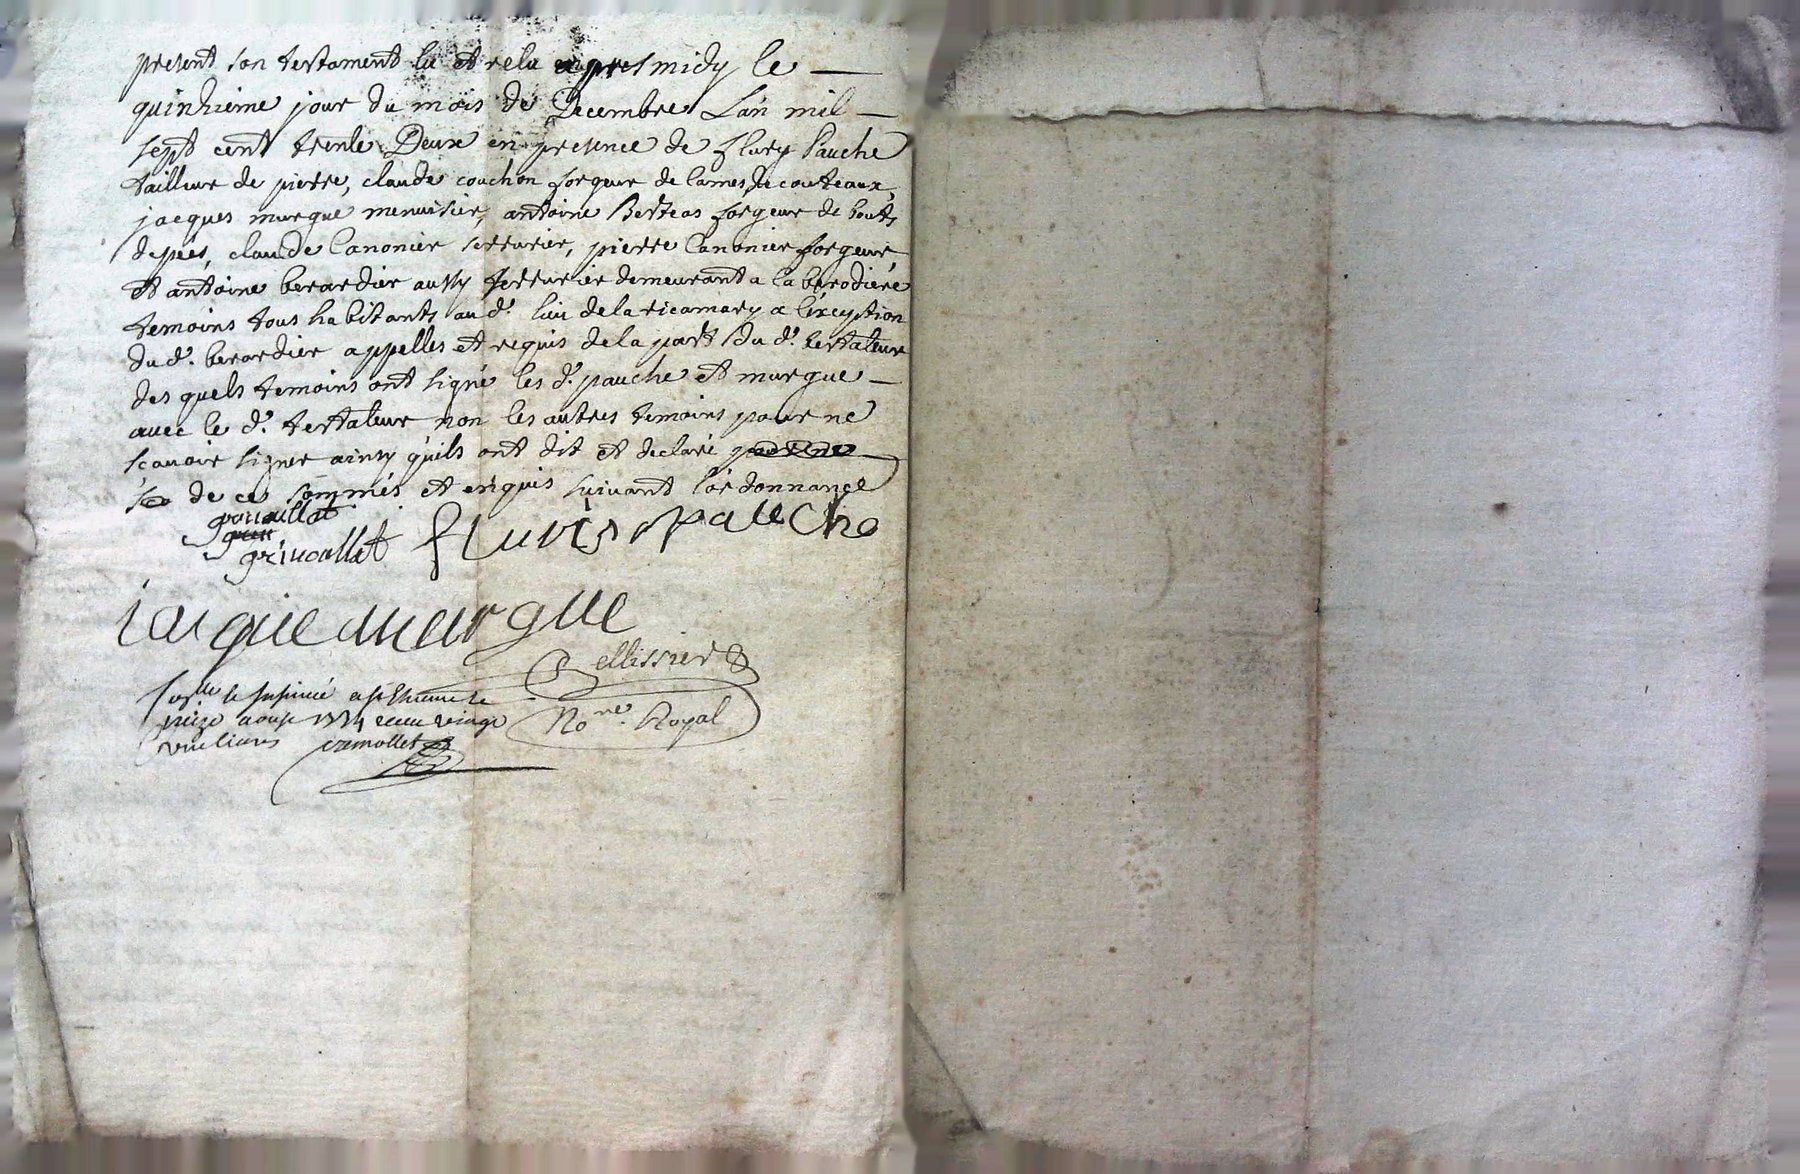 present son testament lu et relu apres midy le
quinzieme jour du mois de Decembre L'an mil
sept cent trente Deux en presence de flury Pauche
tailleur de pierre, claude couchon forgeur de lames de couteaux,
jacques murgue menuisier, antoine Berteas forgeur de bouts
depées, claude Canonier serrurier, pierre Canonier forgeur,
et antoine berardier aussy serrurier demeurant a la berodiere
temoins tous habitants au d. lieu de la ricamary a l'exception
du d. berardier appellés et requis de la part du d. testateur
des quels temoins ont signé les d. pauche et murgue
avec le d. testateur non les autres temoins pour ne
scavoir signer ainsy qu'ils ont dit et declaré
de ce sommés et enquis suivant l'ordonnance
fluris pauche
jacque murgue
Pellissier
No.re Royal
aoust 1734 vingt
livres